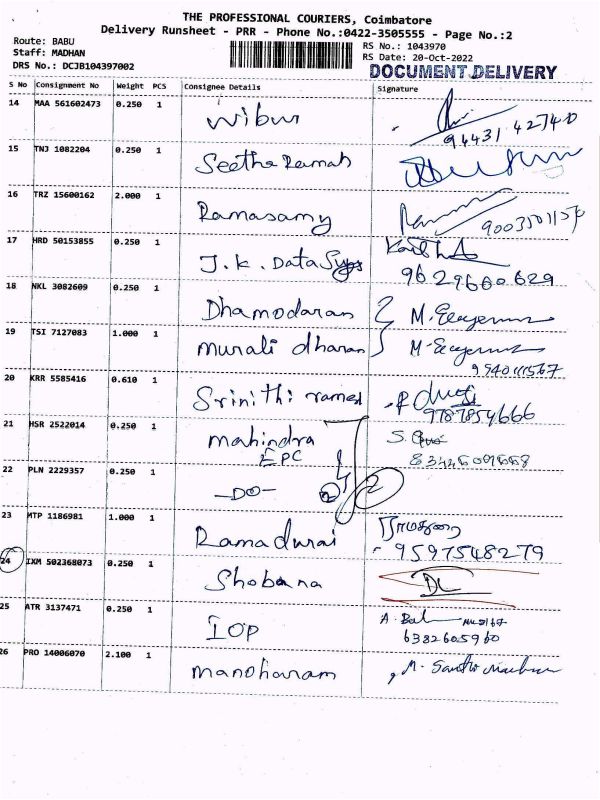 THE PROFESSIONAL COURIERS, Coimbatore
Delivery Runsheet - PRR - Phone No.:0422-3505555 - Page No.:2
Route: BABU
RS No.: 1043970
Staff: MADHAN
RS Date: 20-Oct-2022
DRS No.: DCJB104397002
DOCUMENT DELIVERY
S No Consignment No Weight PCS Consignee Details Signature
14 MAA 561602473 0.250 1 Wibur
94431 42740
15 TNJ 1082204 0.250 1 Seetha Ramah
16 TRZ 15600162 2.000 1 Ramasamy
17 HRD 50153855 0.250 1 J.K. Data Sys
9629660629
18 NKL 3082609 0.250 1 Dhamodaran
19 TSI 7127083 1.000 1 Murali dharan
20 KRR 5585416 0.610 1 Srinithi ramesh
9787854666
21 HSR 2522014 0.250 1 mahindra
EPC
22 PLN 2229357 0.250 1 -DO- 2 2
23 MTP 1186981 1.000 1 Ramadurai ராமதுரை
9597548279
24 IXM 502368073 0.250 1 Shobana DL
25 ATR 3137471 0.250 1 IOP
6382605960
26 PRO 14006070 2.100 1 manoharam